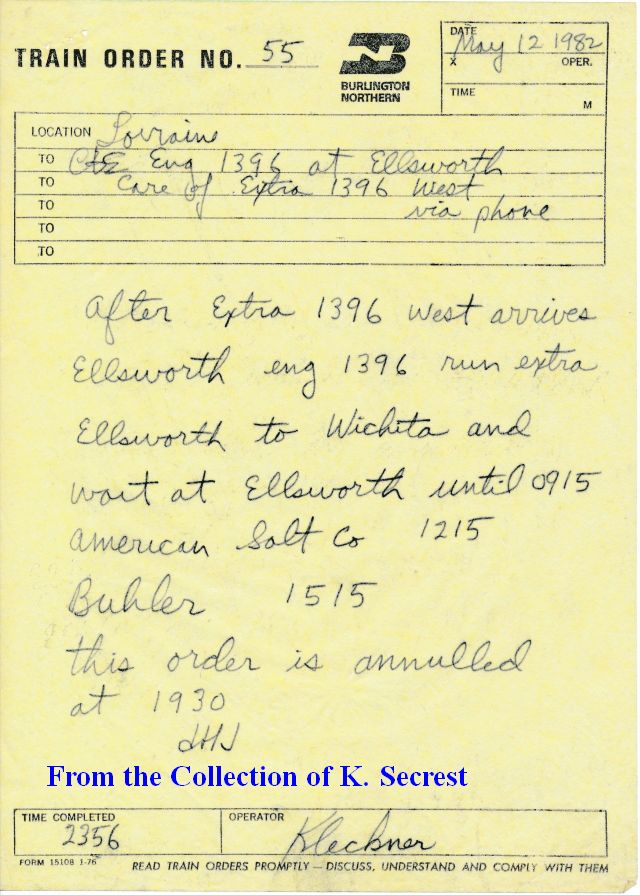 TRAIN ORDER NO. 55
BURLINGTON
NORTHERN
DATE
May 12 1982
X OPER.
TIME
M
LOCATION Lorraine
TO C&E Eng 1396 at Ellsworth
TO Care of Extra 1396 West
TO via phone
TO
TO
After Extra 1396 West arrives
Ellsworth eng 1396 run extra
Ellsworth to Wichita and
wait at Ellsworth until 0915
American Salt Co 1215
Buhler 1515
this order is annulled
at 1930
From the Collection of K. Secrest
TIME COMPLETED
2356
OPERATOR
Kleckner
FORM 15108 1-76
READ TRAIN ORDERS PROMPTLY—DISCUSS, UNDERSTAND AND COMPLY WITH THEM